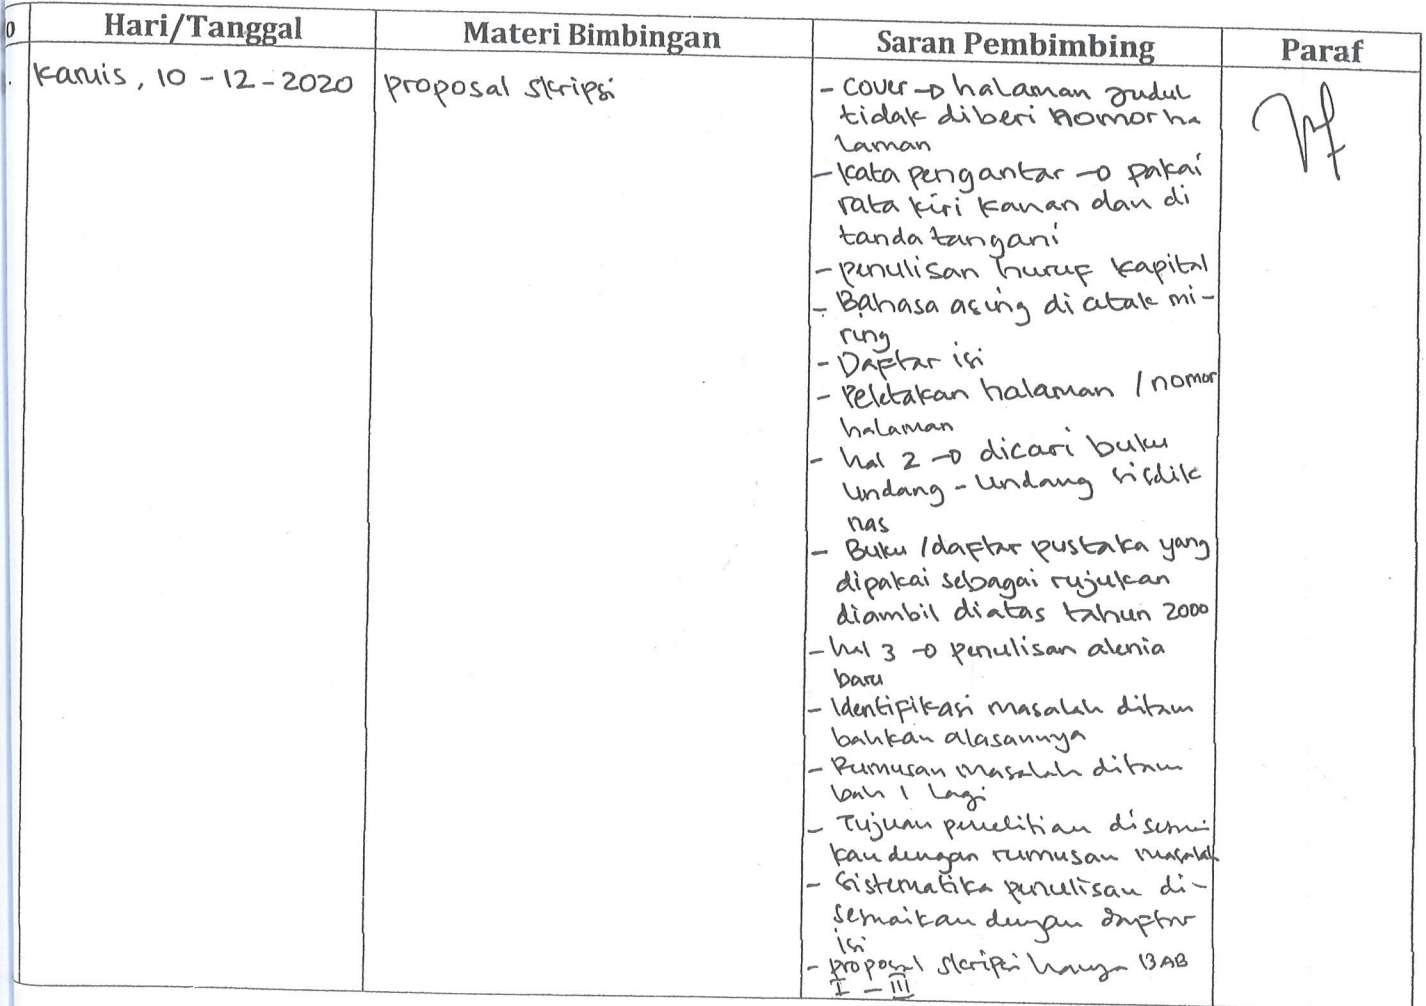 o Hari/Tanggal Materi Bimbingan Saran Pembimbing Paraf
. Kamis, 10 - 12 - 2020 proposal skripsi - cover → halaman judul
tidak diberi nomor ha
laman
- kata pengantar → pakai
rata kiri kanan dan di
tanda tangani
- penulisan huruf kapital
- Bahasa asing di atak mi-
ring
- Daftar isi
- Peletakan halaman / nomor
halaman
- hal 2 → dicari buku
Undang - Undang sisdik
nas
- Buku /daftar pustaka yang
dipakai sebagai rujukan
diambil diatas tahun 2000
- hal 3 → penulisan alenia
baru
- Identifikasi masalah ditam
bahkan alasannya
- Rumusan masalah ditam
bah 1 lagi
- Tujuan penelitian disesuai
kan dengan rumusan masalah
- Sistematika penulisan di-
sesuaikan dengan daftar
isi
- proposal skripsi hanya BAB
I - III